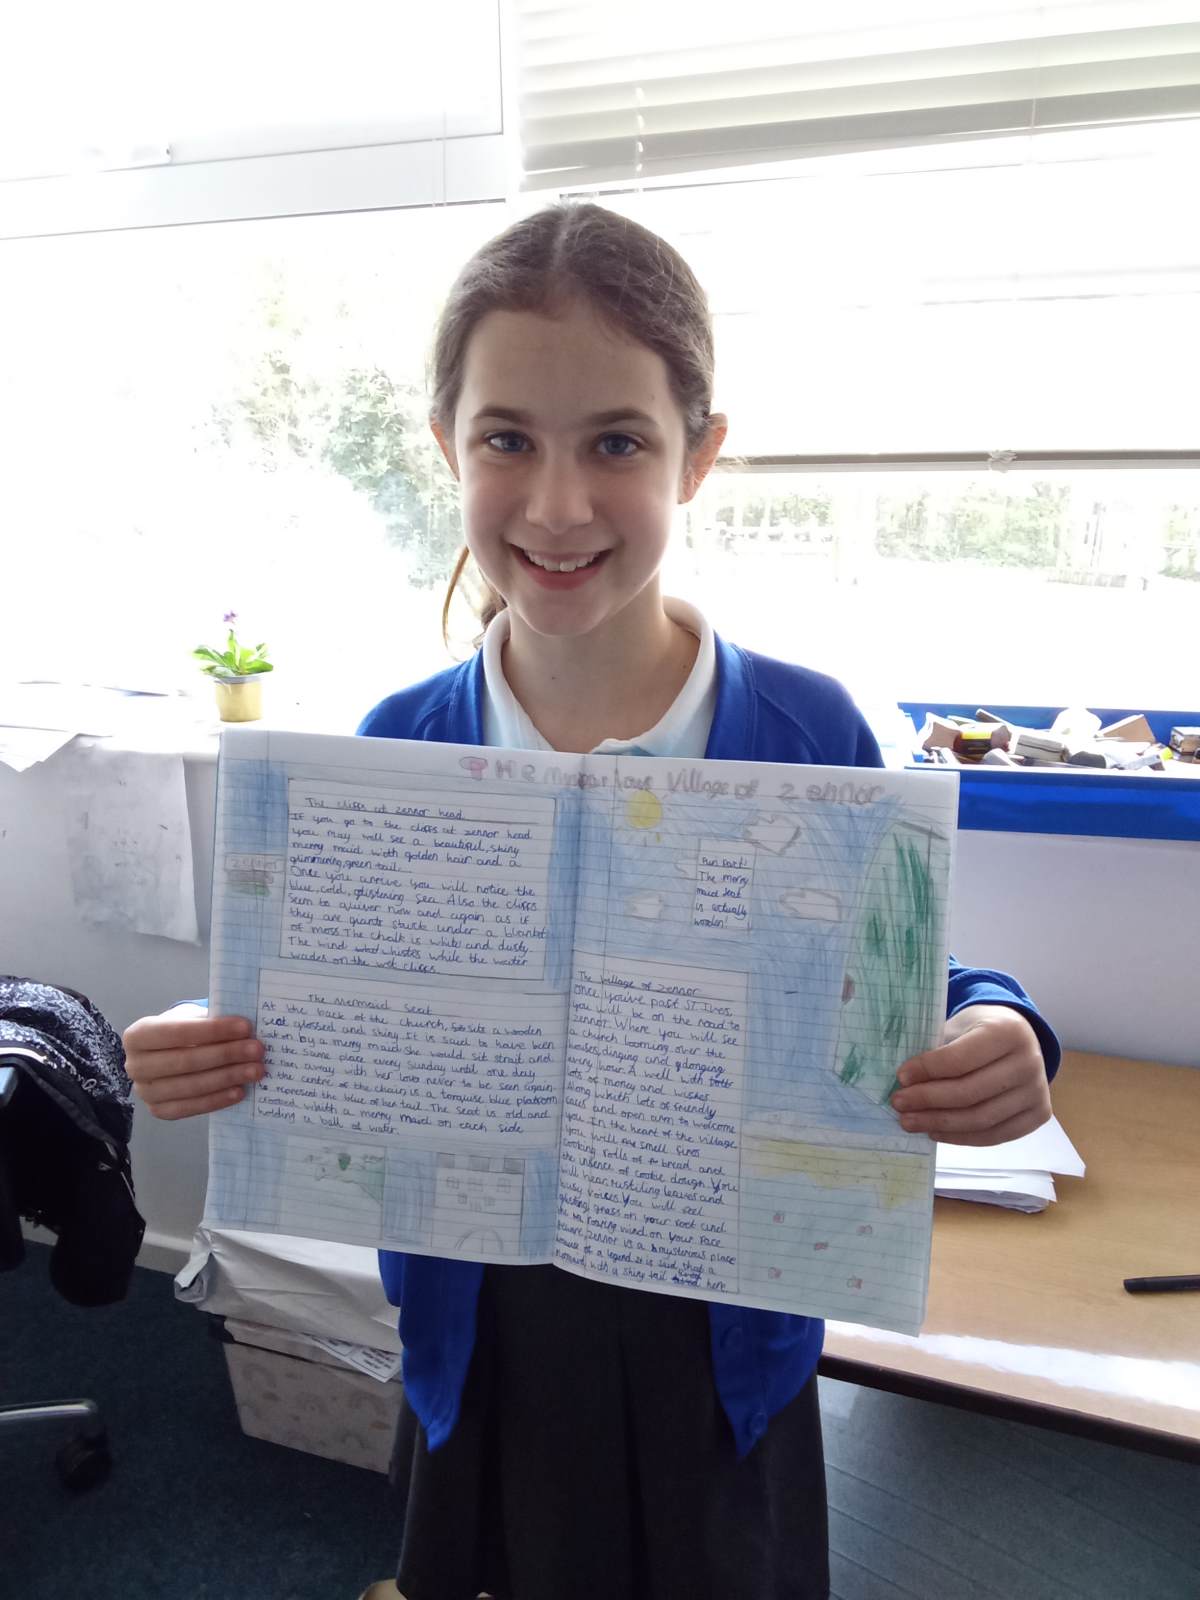 THe Mysterious Village of Zennor
The cliffs at Zennor head.
If you go to the cliffs at zennor head
you may well see a beautiful, shiny
merry maid with golden hair and a
glimmering, green tail.
Once you arrive you will notice the
blue, cold, glistening sea. Also the cliffs
seem to quiver now and again as if
they are giants stuck under a blanket
of moss. The chalk is white and dusty.
The wind whistles while the water
wades on the wet cliffs.
zennor
The Mermaid Seat
At the back of the church, sits a wooden
seat glossed and shiny. It is said to have been
sat on by a merry maid she would sit strait and
in the same place every Sunday until one day
she ran away with her lover never to be seen again.
In the centre of the chair, is a torquise blue platform
to represent the blue of her tail. The seat is old and
crooked whith a merry maid on each side
holding a ball of water.
Fun Fact!
The merry
maid seat
is actually
wooden!
The village of Zennor
Once you've past ST. Ives,
you will be on the road to
zennor. Where you will see
a church looming over the
houses, dinging and gdonging
every hour. A well with
lots of money and wishes
Along whith lots of friendly
faces and open arm to welcome
you. In the heart of the village
you will smell fires
cooking rolls of bread and
the insence of cookie dough. You
will hear rustiling leaves and
busy voices. You will feel
glisting grass on your foot and
the roaring wind on your face
beware, zennor is a mysterious place
because of a legend. It is said that a
mermaid with a shiny tail here.